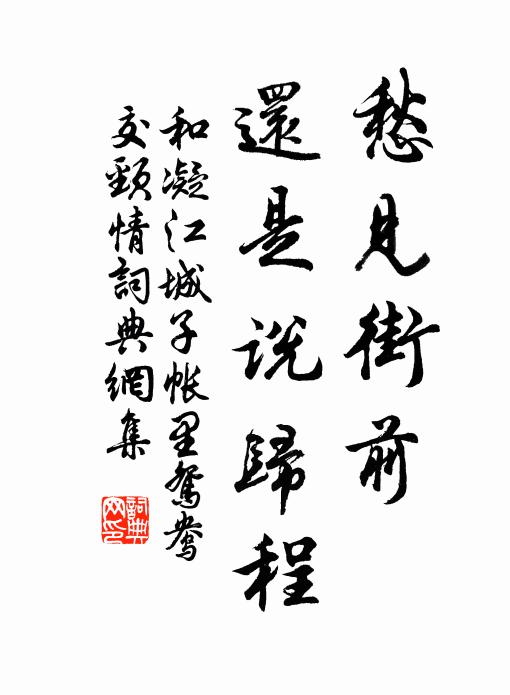 愁見街前
還是説歸程
和凝江城子帳里鴛鴦
交頸情詞典網集
詞典
网印